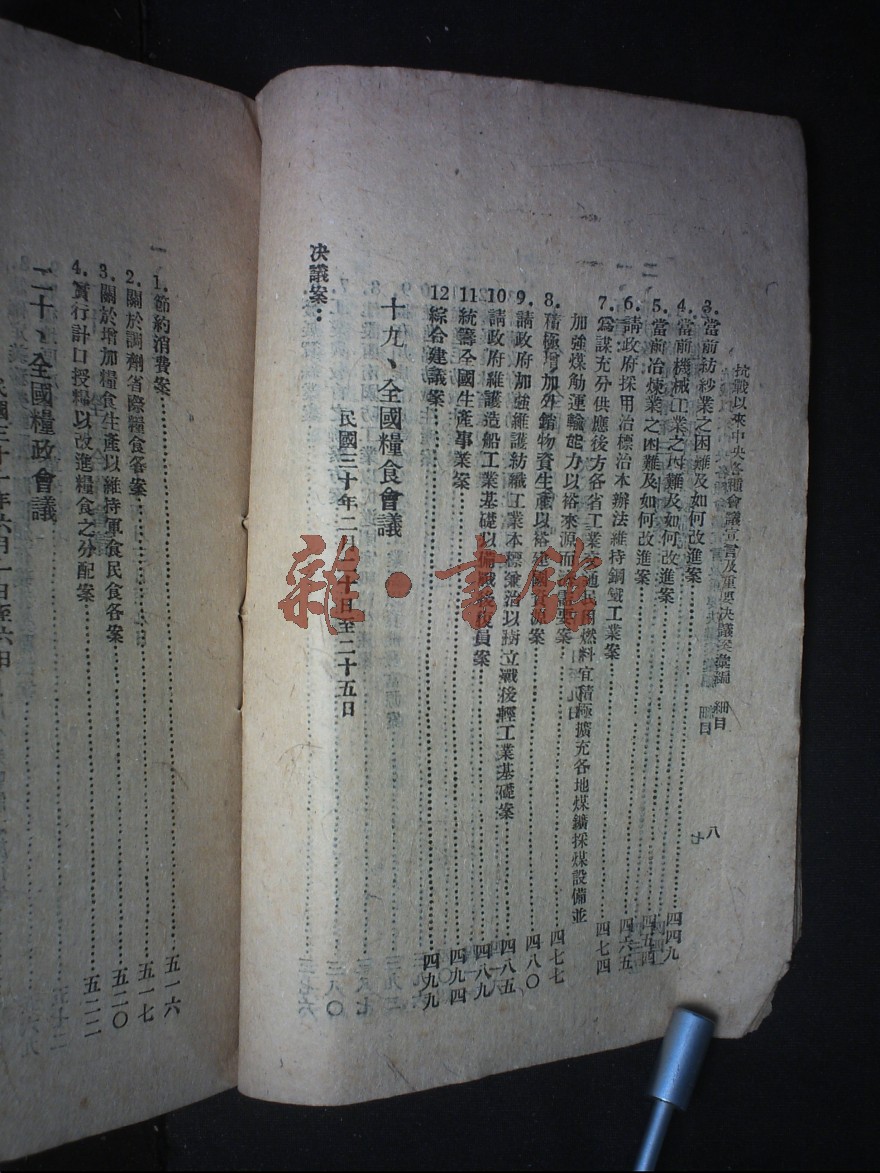 抗戰以來中央各種會議宣言及重要決議案彙編 細目 八
3.當前紡紗業之困難及如何改進案 四四九
4.當前機械工業之困難及如何改進案
5.當前冶煉業之困難及如何改進案 四五四
6.請政府採用治標治本辦法維持鋼鐵工業案 四六五
7.爲謀充分供應後方各省工業交通民用燃料宜積極擴充各地煤鑛採煤設備並 四七四
加強煤觔運輸能力以裕來源而濟需要案
8.積極增加外銷物資生產以搭建國資源案 四七七
9.請政府加強維護紡織工業本標兼治以樹立戰後輕工業基礎案 四八〇
10請政府維護造船工業基礎以備戰後復員案 四八五
11統籌全國生產事業案 四八九
12綜合建議案 四九四
四九九
十九、全國糧食會議
民國三十年二月二十日至二十五日
決議案：
一
1.節約消費案 五一六
2.關於調劑省際糧食各案 五一七
3.關於增加糧食生產以維持軍食民食各案 五二〇
4.實行計口授糧以改進糧食之分配案 五二二
二十、全國糧政會議
民國三十一年六月一日至六日
雜·書館